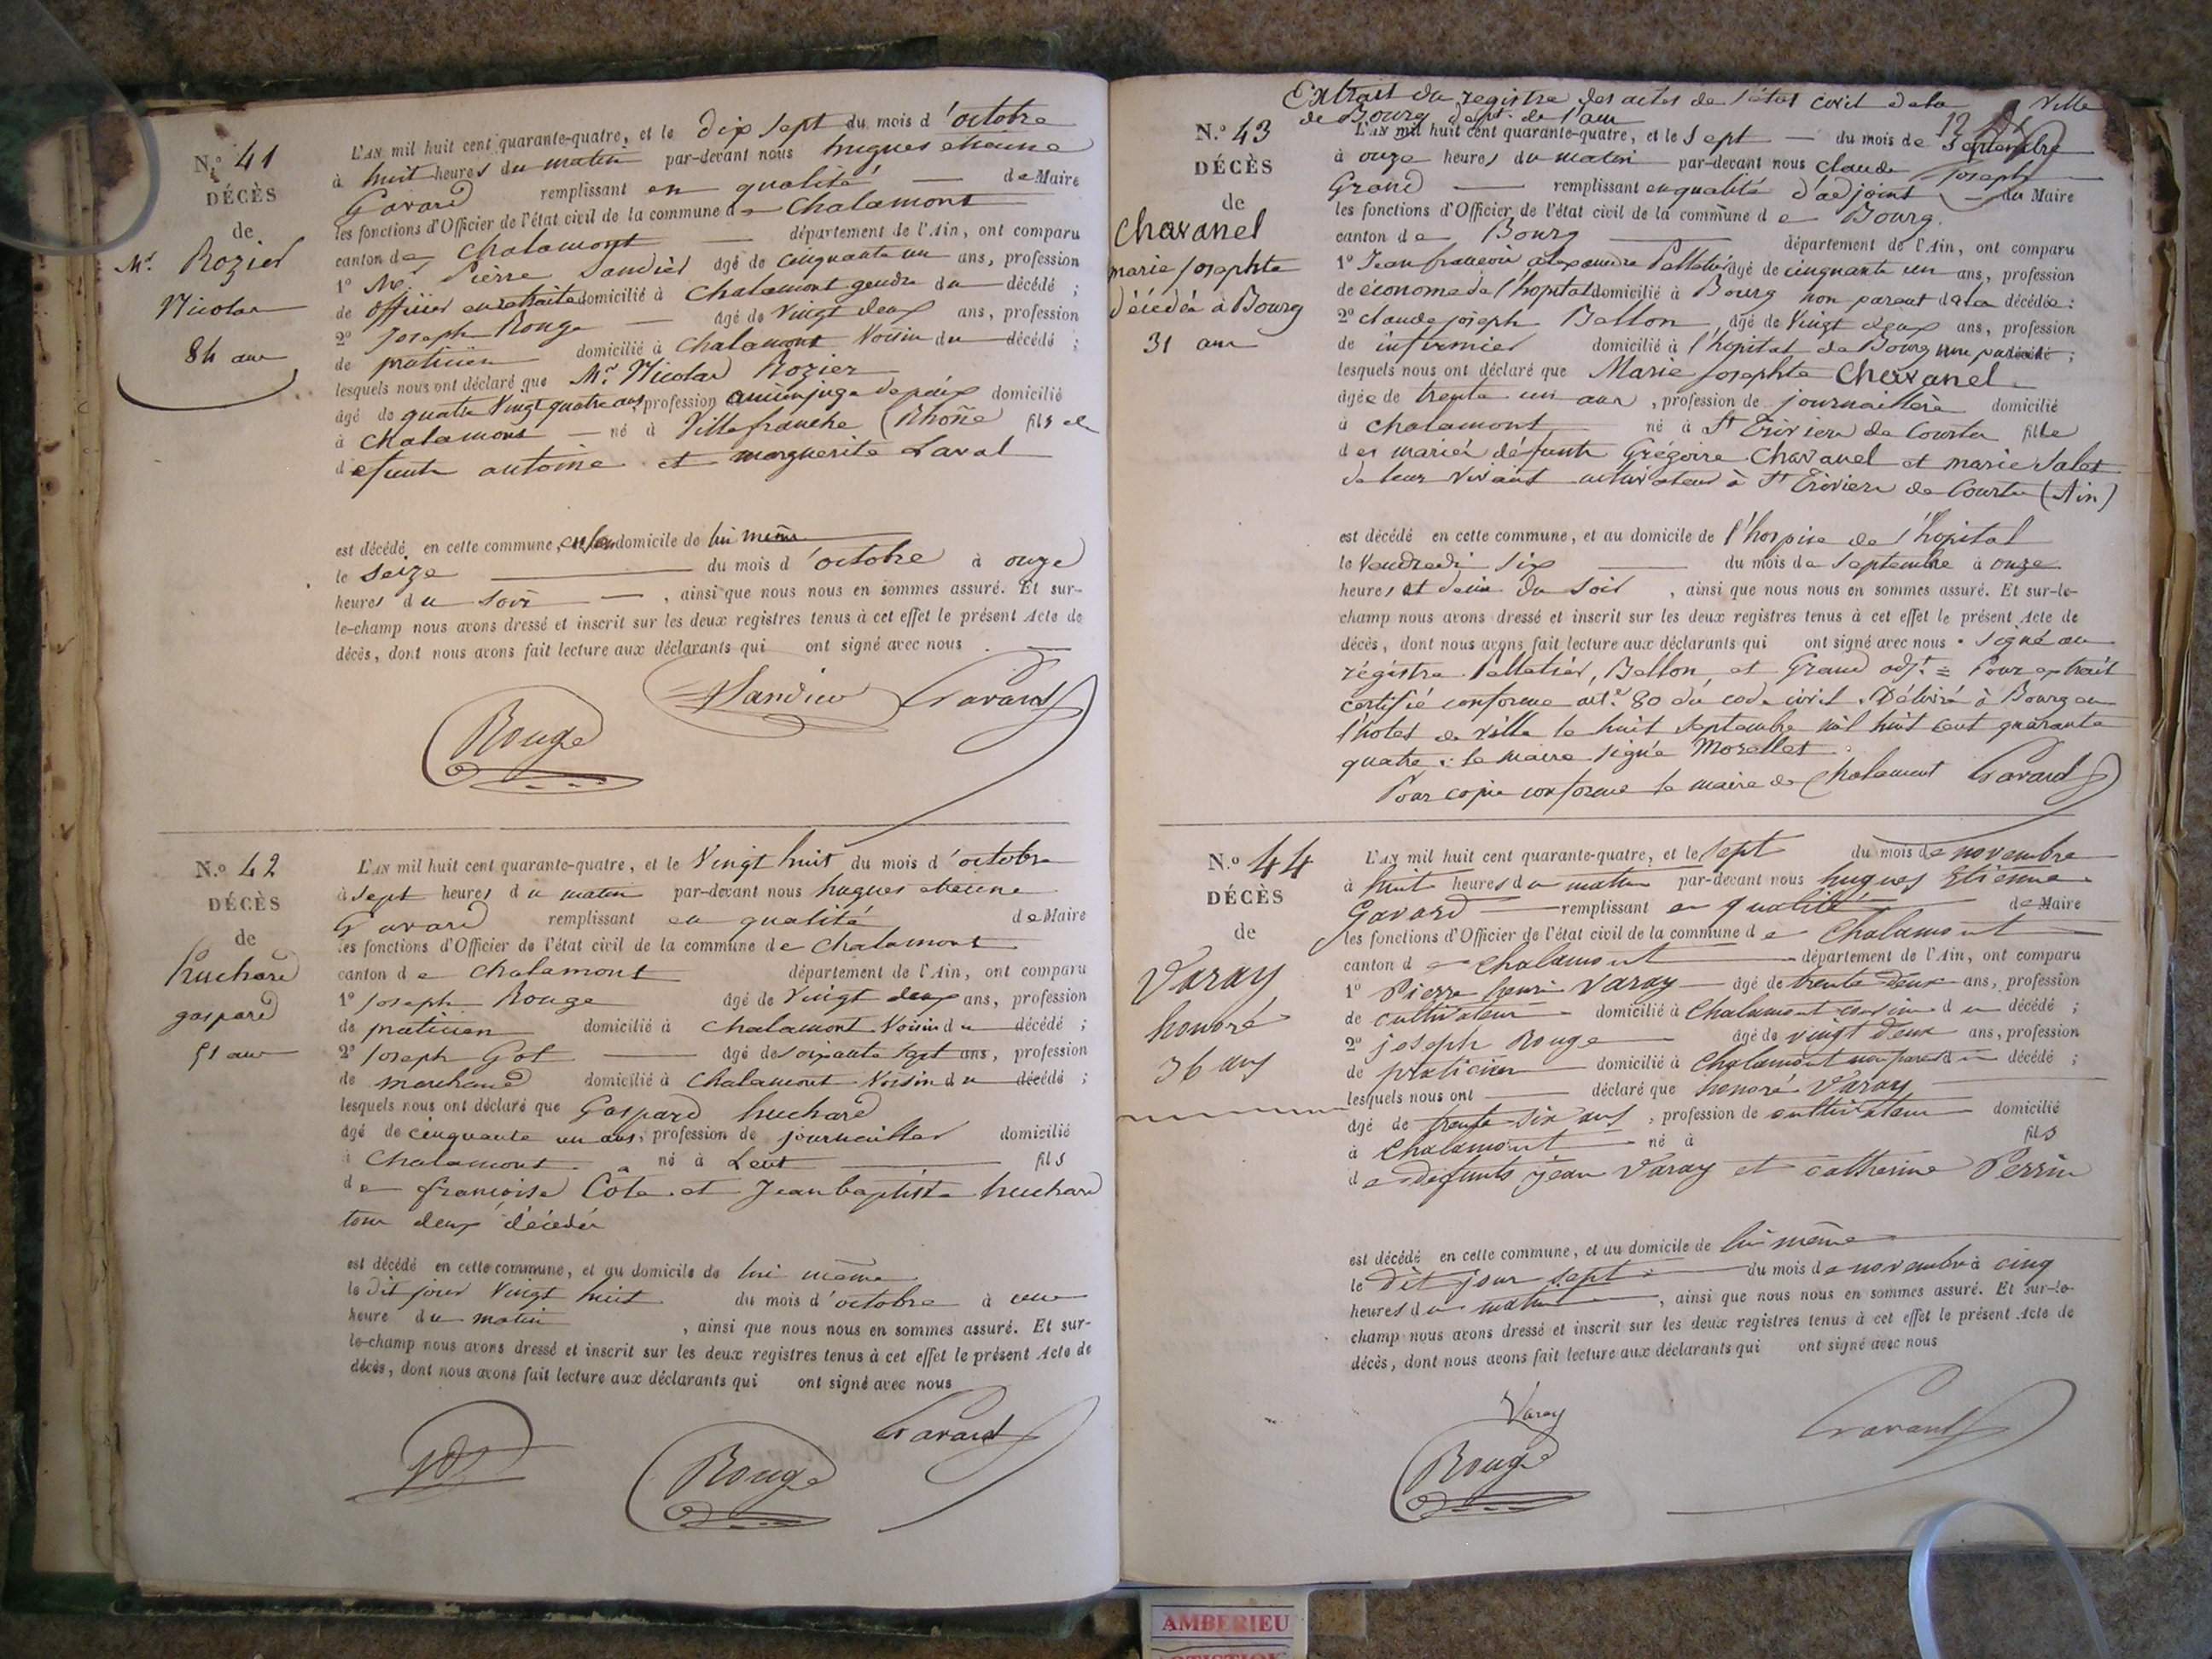 N.o 41
DÉCÈS
de
Mr. Rozier
Nicolas
84 ans
L'AN mil huit cent quarante-quatre, et le dix sept du mois d'octobre
à huit heures du matin par-devant nous hugues étienne
Gavard remplissant en qualité de Maire
les fonctions d'Officier de l'état civil de la commune de Chalamont
canton de Chalamont département de l'Ain, ont comparu
1o Mr. Pierre âgé de cinquante un ans, profession
de officier en retraite domicilié à Chalamont gendre du décédé ;
2o Joseph Rouge âgé de vingt deux ans, profession
de praticien domicilié à Chalamont Voisin du décédé ;
lesquels nous ont déclaré que Mr. Nicolas Rozier
âgé de quatre Vingt quatre ans, profession ancien juge de paix domicilié
à Chalamont né à Villefranche (Rhône fils de
défunts antoine et marguerite Laval
est décédé en cette commune, domicile de lui même
le seize du mois d'octobre à onze
heures du soir, ainsi que nous nous en sommes assuré. Et sur-
le-champ nous avons dressé et inscrit sur les deux registres tenus à cet effet le présent Acte de
décès, dont nous avons fait lecture aux déclarants qui ont signé avec nous
Gavard
Rouge
N.o 42
DÉCÈS
de
huchard
gaspard
51 ans
L'AN mil huit cent quarante-quatre, et le Vingt huit du mois d'octobre
à sept heures du matin par-devant nous hugues étienne
Gavard remplissant en qualité de Maire
les fonctions d'Officier de l'état civil de la commune de Chalamont
canton de Chalamont département de l'Ain, ont comparu
1o Joseph Rouge âgé de vingt deux ans, profession
de praticien domicilié à Chalamont Voisin du décédé ;
2o Joseph Got âgé de soixante sept ans, profession
de marchand domicilié à Chalamont Voisin du décédé ;
lesquels nous ont déclaré que Gaspard huchard
âgé de cinquante un ans, profession de journaillier domicilié
à Chalamont né à Lent fils
de françoise Cote et Jean baptiste huchard
tous deux décédés
est décédé en cette commune, et au domicile de lui même
le dit jour Vingt huit du mois d'octobre à une
heure du matin, ainsi que nous nous en sommes assuré. Et sur-
le-champ nous avons dressé et inscrit sur les deux registres tenus à cet effet le présent Acte de
décès, dont nous avons fait lecture aux déclarants qui ont signé avec nous
Gavard
Rouge
Extrait du registre des actes de l'état civil de la Ville
de Bourg dept. de l'ain
N.o 43
DÉCÈS
de
Chavanel
marie josephte
décédée à Bourg
31 ans
L'AN mil huit cent quarante-quatre, et le sept du mois de Septembre
à onze heures du matin par-devant nous Claude Joseph
Grand remplissant en qualité d'adjoint du Maire
les fonctions d'Officier de l'état civil de la commune de Bourg.
canton de Bourg département de l'Ain, ont comparu
1o Jean françois alexandre Pelletier âgé de cinquante un ans, profession
de économe de l'hopital domicilié à Bourg non parent de la décédée ;
2o claude joseph Bellon âgé de Vingt deux ans, profession
de infirmier domicilié à l'hopital de Bourg non parent ;
lesquels nous ont déclaré que Marie josephte Chavanel
âgée de trente un ans, profession de journaillière domicilié
à Chalamont né à St Trivier de Courtes fille
des mariés défunts Grégoire Chavanel et marie Salet
de leur vivant cultivateurs à St Trivier de Courtes (Ain)
est décédé en cette commune, et au domicile de l'hospice de l'hopital
le Vendredi six du mois de septembre à onze
heures et demie du soir, ainsi que nous nous en sommes assuré. Et sur-le-
champ nous avons dressé et inscrit sur les deux registres tenus à cet effet le présent Acte de
décès, dont nous avons fait lecture aux déclarants qui ont signé avec nous. signé au
régistre Pelletier, Bellon, et Grand adjt. = Pour extrait
certifié conforme art. 80 du code civil. Délivré à Bourg en
l'hotel de ville le huit septembre mil huit cent quarante
quatre : le maire signé Morellet.
Pour copie conforme le maire de Chalamont Gavard
N.o 44
DÉCÈS
de
Varay
honoré
36 ans
L'AN mil huit cent quarante-quatre, et le sept du mois de novembre
à huit heures du matin par-devant nous hugues Etienne
Gavard remplissant en qualité de Maire
les fonctions d'Officier de l'état civil de la commune de Chalamont
canton de Chalamont département de l'Ain, ont comparu
1o Pierre henri Varay âgé de trente deux ans, profession
de cultivateur domicilié à Chalamont cousin du décédé ;
2o joseph Rouge âgé de vingt deux ans, profession
de praticien domicilié à Chalamont non parent du décédé ;
lesquels nous ont déclaré que honoré Varay
âgé de trente six ans, profession de cultivateur domicilié
à Chalamont né à fils
de defunts jean Varay et catherine Perrin
est décédé en cette commune, et au domicile de lui même
le dit jour sept du mois de novembre à cinq
heures du matin, ainsi que nous nous en sommes assuré. Et sur-le-
champ nous avons dressé et inscrit sur les deux registres tenus à cet effet le présent Acte de
décès, dont nous avons fait lecture aux déclarants qui ont signé avec nous
Varay
Gavard
Rouge
AMBERIEU